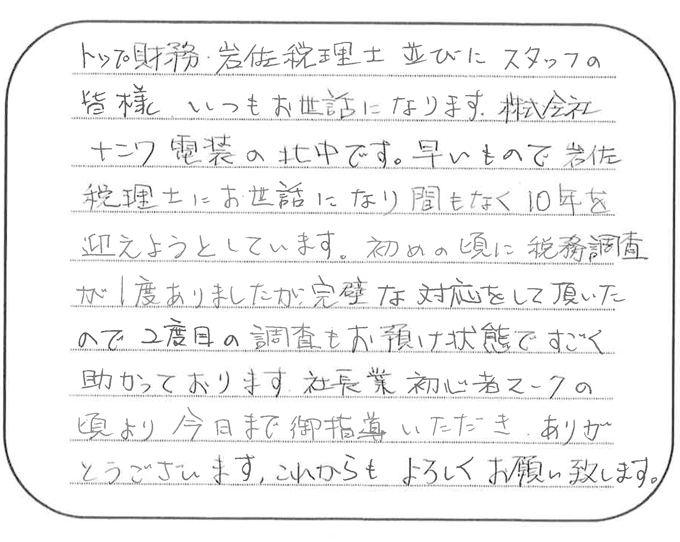 トップ財務・岩佐税理士 並びに スタッフの
皆様、いつもお世話になります。株式会社
ナニワ電装の北中です。早いもので岩佐
税理士にお世話になり間もなく10年を
迎えようとしています。初めの頃に税務調査
が1度ありましたが、完璧な対応をして頂いた
ので2度目の調査もお預け状態ですごく
助かっております。社長業初心者マークの
頃より今日まで御指導いただき、ありが
とうございます。これからもよろしくお願い致します。